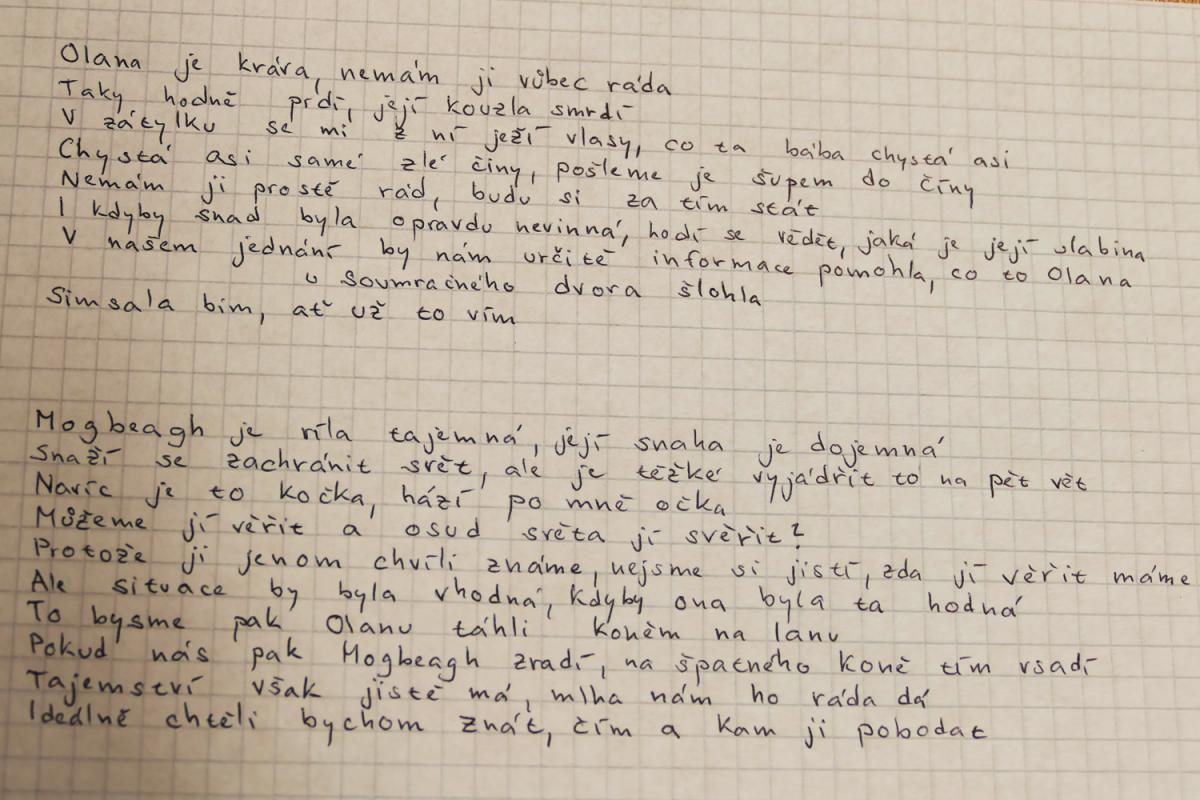 Olana je kráva, nemám ji vůbec ráda
Taky hodně prdí, její kouzla smrdí
V zátylku se mi z ní ježí vlasy, co ta bába chystá asi
Chystá asi samé zlé činy, pošleme je šupem do číny
Nemám ji prostě rád, budu si za tím stát
I kdyby snad byla opravdu nevinná, hodí se vědět, jaká je její slabina
V našem jednání by nám určitě informace pomohla, co to Olana
u Soumračného dvora šlohla
Simsala bim, ať už to vím
Mogbeagh je víla tajemná, její snaha je dojemná
Snaží se zachránit svět, ale je těžké vyjádřit to na pět vět
Navíc je to kočka, hází po mně očka
Můžeme jí věřit a osud světa jí svěřit?
Protože ji jenom chvíli známe, nejsme si jistí, zda jí věřit máme
Ale situace by byla vhodná, kdyby ona byla ta hodná
To bysme pak Olanu táhli koněm na lanu
Pokud nás pak Mogbeagh zradí, na špatného koně tím vsadí
Tajemství však jistě má, mlha nám ho ráda dá
Ideálně chtěli bychom znát, čím a kam ji pobodat